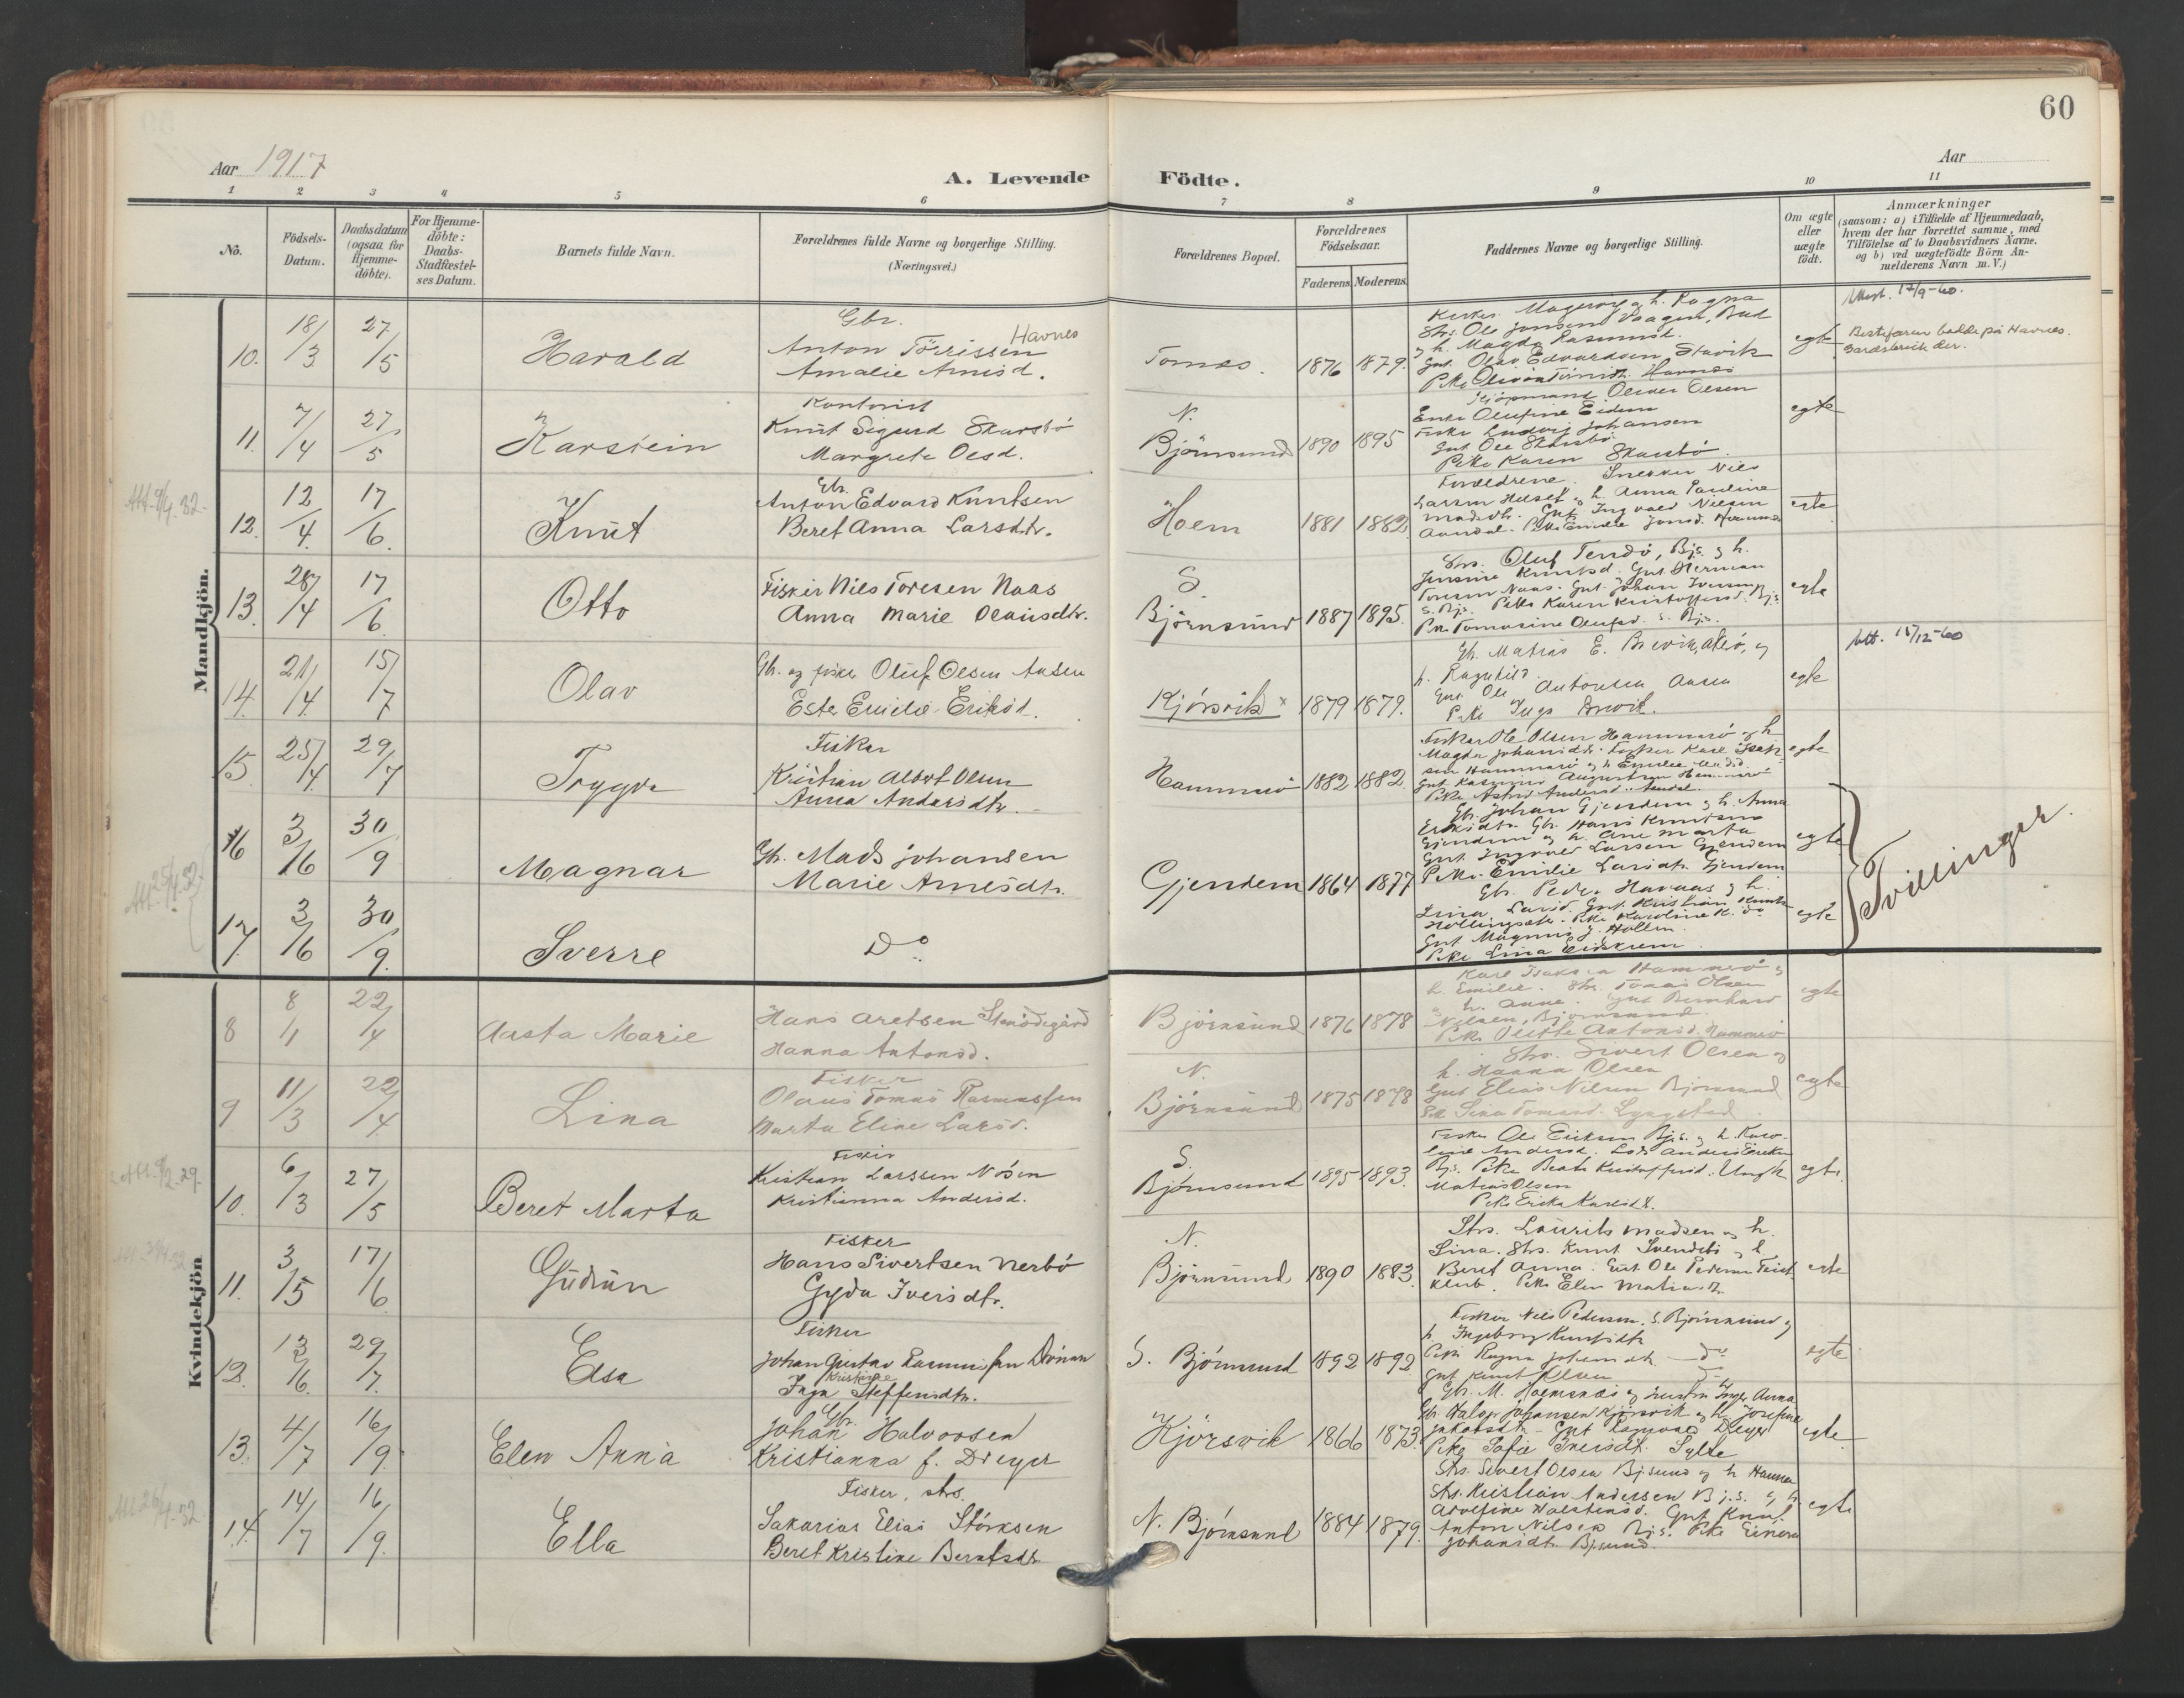 60
Aar 1917
Aar
A. Levende Födte.
1 2 3 4 5 6 7 8 9 10 11
No.
Födsels-
Datum.
Daabsdatum
(ogsaa for
Hjemme-
döbte).
For Hjemme-
döbte:
Daabs-
Stadfæstel-
ses Datum.
Barnets fulde Navn.
Forældrenes fulde Navne og borgerlige Stilling.
(Næringsvei.)
Forældrenes Bopæl.
Forældrenes
Födselsaar.
Faderens. Moderens.
Faddernes Navne og borgerlige Stilling.
Om ægte
eller
uægte
födt.
Anmærkninger
(saasom: a) i Tilfælde af Hjemmedaab,
hvem der har forrettet samme, med
Tilföielse af to Daabsvidners Navne.
og b) ved uægtefödte Börn An-
melderens Navn m. V.)
Mandkjön.
10. 18/3 27/5 Harald
Gbr.
Anton Törrissen Havnes
Amalie Arnisd.
Tornes. 1876 1879.
h. Ragna
Ole Jonsen Vaagen, Bud
h. Magda Rasmusd.
Gut. Olav Edvardsen, Stavik
Havnes
egte
17/9-60.
Bestefaren bodde på Havnes.
11. 7/4 27/5 Karstein
Kontorist
Knut Sigurd Skarsbö
Margrete Olsd.
N.
Björnsund 1890 1895
Kjöpmand Oliver Olsen
Enke Olufine Eidem
Fisker Ludvig Johansen
Gut Ole Skarsbö
Pike Karen Skarsbö.
egte
12. 12/4 17/6 Knut
Gbr.
Anton Edvard Knutsen
Beret Anna Larsdtr.
Hoem 1881 1882.
Forældrene. Snekker Nils
Larsen Huset og h. Anna Pauline
Gut Ingvald Nielsen
egte
13. 28/4 17/6 Otto
Fisker Nils Toresen Naas
Anna Marie Olausdtr.
S.
Björnsund 1887 1895.
Strs. Oluf Tendö, Bjs. og h.
Jensine Knutsd. Gut Herman
Toresen Naas. Gut. Johan Iversen
S. Bjs. Pike Karen Kristoffersd. Bjs.
Pike Tomasine Olufsd. S. Bjs.
egte
14. 21/4 15/7 Olav
Gbr. og fisker Oluf Olsen Aasen
Ester Emilie Eriksd.
Kjörsvik x 1879 1879.
Gbr. Matias E. Brevik, og
h. Ragnhild.
Gut Ole Antonsen Aasen
Pike Inga Brevik.
egte
Utt. 15/12-60
15 25/4 29/7 Trygve
Fisker
Kristian Albert Olsen
Anna Andersdtr.
Hammerö 1882 1882.
Fisker Ole Olsen Hammerö og h
Magda Johansdtr. Fisker Karl Isak-
sen Hammerö og h Emilie
Pike Astrid Andersd.
egte
16 3/6 30/9 Magnar
Gbr. Mads Johansen
Marie Arnesdtr.
Gjendem 1864 1877
Gbr. Johan Gjendem og h. Anna
Eriksdtr. Gbr. Hans Knutsen
Gjendem og h. Ane Marta
Gut Ingvald Larsen Gjendem
Pike Emilie Larsdtr. Gjendem
egte
Tvillinger.
17. 3/6 30/9. Sverre
Do
Gbr. Peder Havnaas og h.
Lina Larsd. Gut Kristian
Pike Karoline K. do
Gut Magnus J. Hollen
Pike Lina Eidskrem
egte
Kvindekjön
8 8/1 22/4 Aasta Marie
Hans Aretsen Stenödegård
Hanna Antonsd.
Björnsund 1876 1878
Karl Isaksen Hammerö og
h. Emilie. Strs. Tomas Olsen
h. Anne. Gut Bernhard
Nilsen, Björnsund.
Pike Olette Antonsd. Hammerö
egte
9 11/3 22/4 Lina
Fisker
Olaus Tomas Rasmussen
Marta Eline Larsd.
N.
Björnsund 1875 1878
Strs. Sivert Olsen og
h. Hanna Olsen
Gut Elias Nilsen Björnsund
Pike Lina Tomasd. Lyngstad
egte
10. 6/3 27/5 Beret Marta
Fisker
Kristian Larssen Nösen
Kristianna Andersd.
S.
Björnsund 1895 1893.
Fisker Ole Eriksen Bjs. og h. Karo-
line Andersd. Lods Anders Eriksen
Bjs. Pike Beate Kristoffersd. Ungk.
Matias Olsen
Pike Erika Karlsdtr.
egte
11. 3/5 17/6 Gudrun
Fisker
Hans Sivertsen Nerbö
Gyda Iversdtr.
N.
Björnsund 1890 1883.
Strs. Laurits Madsen og h.
Lina. Strs. Knut Svendsbö og h.
Beret Anna. Gut Ole Pedersen Teist-
klub. Pike Elen Matiasdtr.
egte
12. 13/6. 29/7. Elsa
Fisker
Johan Gustav Rasmussen Drönen
Inga Kristine Steffensdtr.
S. Björnsund 1892 1892
Fisker Nils Pedersen, S. Björnsund og
h. Ingeborg Knutsdtr.
Pike Ragna Johansdtr. do
Gut Knut Olsen
egte
13. 4/7 16/9. Elen Anna
Gbr.
Johan Halvorsen
Kristianna f. Dreyer
Kjörsvik 1866 1873.
Gbr. M. Hoemsnes og hustru Inger Anna
Gbr. Halvor Johansen Kjörsvik og h. Josefine
Jakobsdtr. Gut Ragnvald Dreyer
Pike Sofie Iversdtr. Sylte
egte
14. 14/7 16/9. Ella
Fisker, strs.
Sakarias Elias Störksen
Beret Kristine Berntsdtr.
N. Björnsund 1884 1879.
Strs. Sivert Olsen Bjsund og h Hanna
Strs. Kristian Andersen Bj.S. og h
Gut Knut
Anton Nilsen Bjs. Pike Einara
Johansdtr. Bjsund.
egte